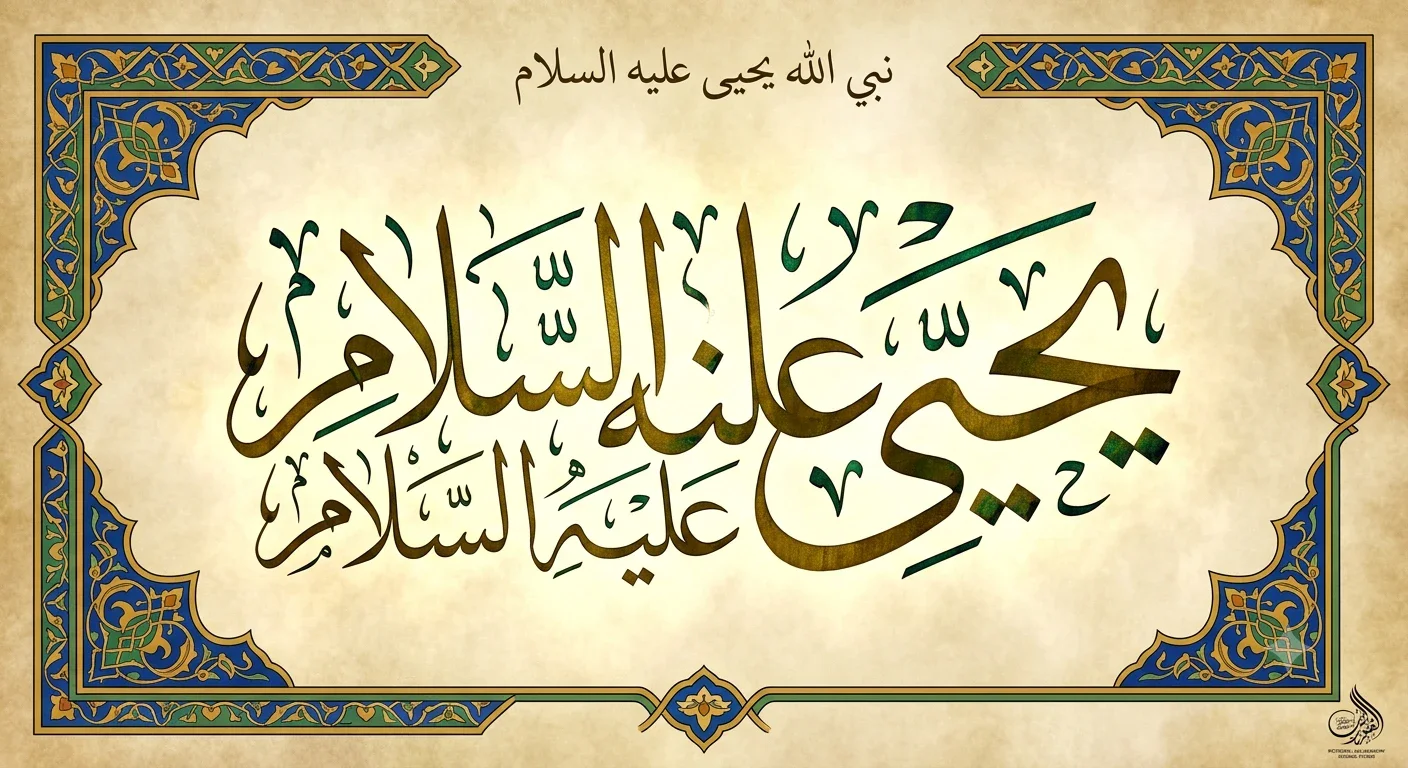 نبي الله يحيى عليه السلام
يَحَيّى علنه السَّلَامِ
عَليَهِ السَّلَامِ